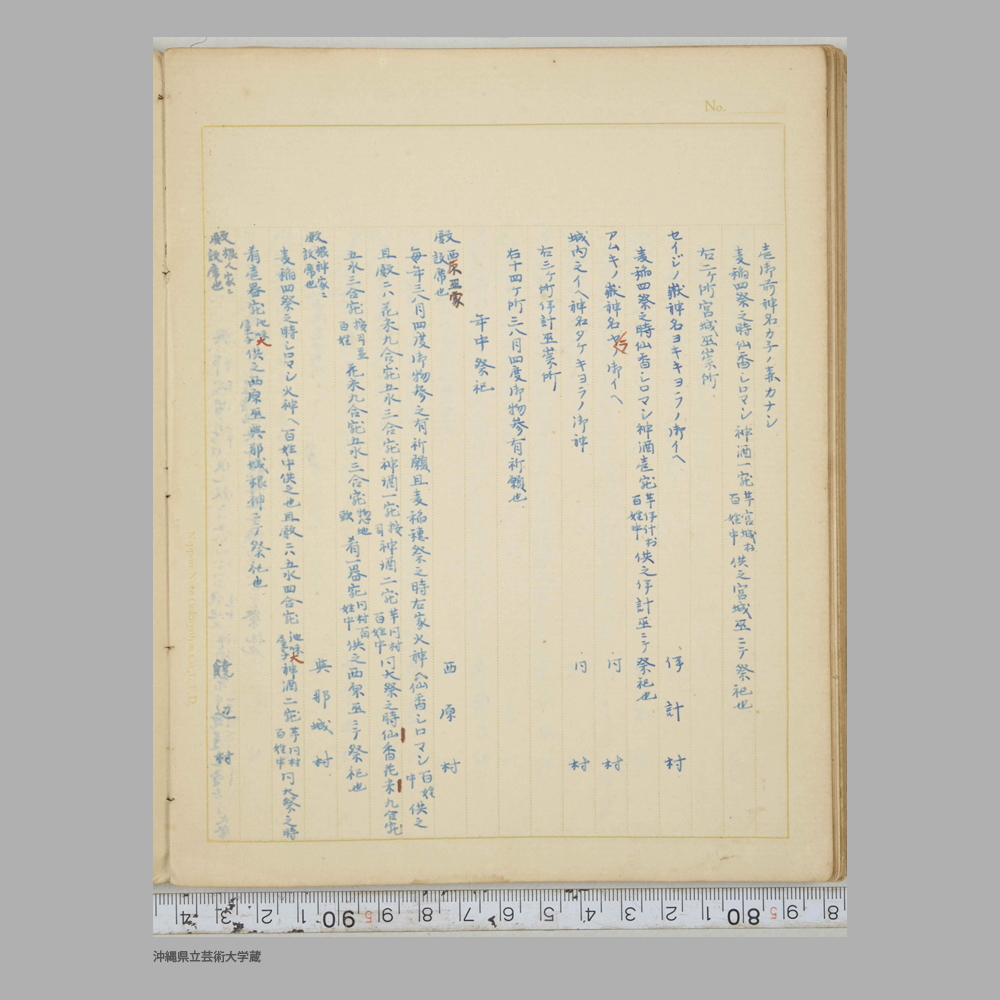 No.
壱御前神名カネノ森カナシ
麦稲四祭之時仙香シロマシ神酒一宛芋宮城村百姓中供之宮城巫ニテ祭祀也
右二ケ所宮城巫崇所
セイジノ嶽神名ヨキキヨラノ御イベ 伊計村
麦稲四祭之時仙香シロマシ神酒壱宛芋伊計村百姓中供之伊計巫ニテ祭祀也
アムキノ嶽神名 御イベ 同村
城内之イベ神名タケキヨラノ御神 同村
右三ケ所伊計巫崇所
右十四ケ所三八月四度御物参有祈願也
年中祭祀
殿西原巫家設席也 西原村
毎年三八月四度御物参之有祈願且麦稲穂祭之時右家火神ヘ仙香シロマシ百姓中供之
且殿ニハ花米九合宛五水三合宛神酒一宛按司神酒二宛芋同村百姓中同大祭之時仙香花米九合宛
五水三合宛按司並百姓花米九合宛五水三合宛惣地頭肴一器宛同村百姓中供之西原巫ニテ祭祀也
殿根神家ニ設席也 与那城村
麦稲四祭之時シロマシ火神ヘ百姓中供之也且殿ニハ五水四合宛池味大屋子神酒二宛芋同村百姓中同大祭之時
肴壱器宛池味大屋子供之西原巫与那城根神ニテ祭祀也
殿根人家ニ設席也 饒辺村
4 3 2 1 90 9 8 7 6 5 4 3 2 1 80 9 8
沖縄県立芸術大学蔵